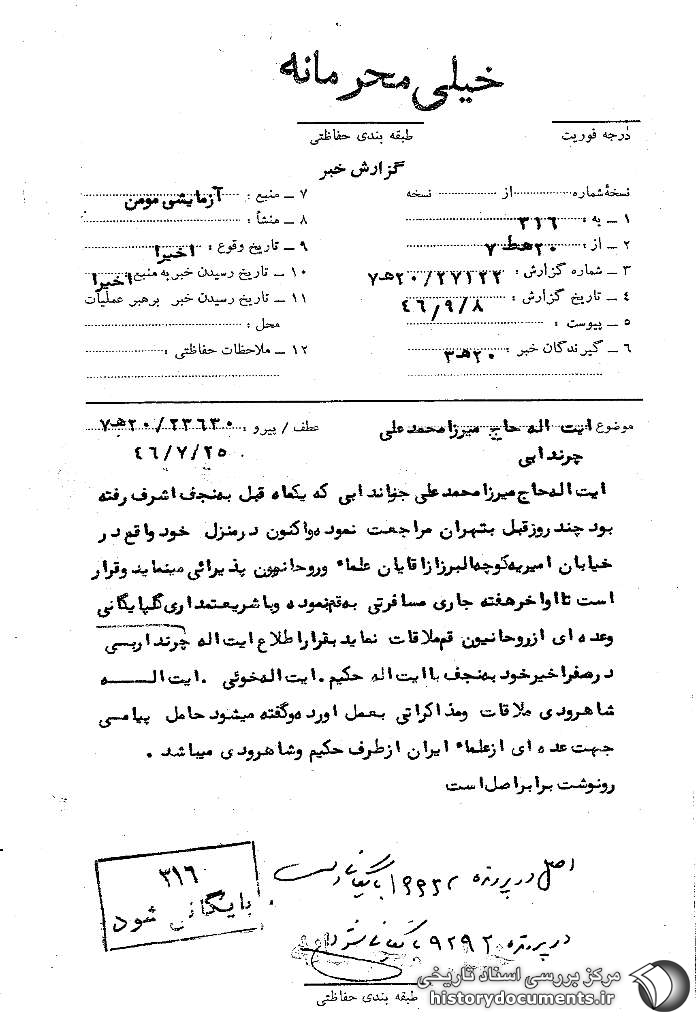 خیلی محرمانه
درجه فوریت
طبقه بندی حفاظتی
گزارش خبر
نسخهٔ شماره از نسخه
۱ ـ به : ۳۱۶
۲ ـ از : ۲۰هط ۷
۳ ـ شماره گزارش : ۲۰/۲۷۱۲۲هـ۷
۴ ـ تاریخ گزارش : ۴۶/۹/۸
۵ ـ پیوست :
۶ ـ گیرندگان خبر : ۲۰هـ۳
۷ ـ منبع : آزمایشی مومن
۸ ـ منشأ :
۹ ـ تاریخ وقوع : اخیرا
۱۰ ـ تاریخ رسیدن خبر به منبع : اخیرا
۱۱ ـ تاریخ رسیدن خبر برهبر عملیات
محل :
۱۲ ـ ملاحظات حفاظتی :
موضوع : ایت اله حاج میرزا محمد علی
چرندابی
عطف / پیرو : ۲۰/۲۳۶۳۰هـ۷
۴۶/۷/۲۵
ایت اله حاج میرزا محمد علی چرندابی که یکماه قبل به نجف اشرف رفته
بود چند روز قبل بتهران مراجعت نموده و اکنون در منزل خود واقع در
خیابان امیریه کوچه البرز از اقایان علماء و روحانیون پذیرائی مینماید و قرار
است تا اواخر هفته جاری مسافرتی به قم نموده و با شریعتمداری گلپایگانی
وعده ای از روحانیون قم ملاقات نماید بقرار اطلاع ایت اله
در سفر اخیر خود به نجف با ایت اله حکیم . ایت اله خوئی . ایت الــــه
شاهرودی ملاقات و مذاکراتی بعمل اورده و گفته میشود حامل پیامی
جهت عده ای از علماء ایران از طرف حکیم و شاهرودی میباشد .
رونوشت برابر اصل است
اصل در پرونده
۳۱۶
بایگانی شود
در پرونده ۹۲۹۲
طبقه بندی حفاظتی
مرکز بررسی اسناد تاریخی
historydocuments.ir